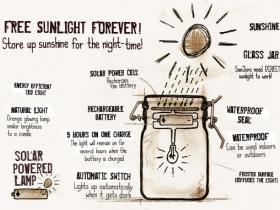 FREE SUNLIGHT FOREVER!
Store up sunshine for the night-time!
SUNSHINE
GLASS JAR
SunJars need DIRECT
sunlight to work!
SOLAR POWER CELL
Recharges
the battery
ENERGY EFFICIENT
LED LIGHT
NATURAL LIGHT
Orange glowing lamp,
similar brightness
to a candle
RECHARGEABLE
BATTERY
WATERPROOF
SEAL
5 HOURS ON ONE CHARGE
The light will remain on for
several hours when the
battery is charged
WATERPROOF
Can be used indoors
or outdoors
SOLAR
POWERED
LAMP
AUTOMATIC SWITCH
Lights up automatically
when it gets dark
FROSTED SURFACE
(DIFFUSES THE LIGHT)